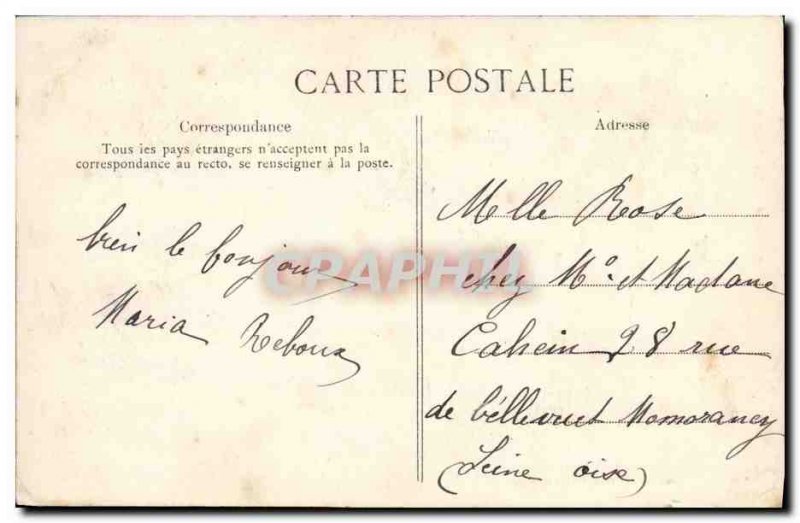 CARTE POSTALE
Correspondance
Tous les pays étrangers n'acceptent pas la
correspondance au recto, se renseigner à la poste.
bien le bonjour
Maria Reboux
Adresse
Melle Rose
chez Mr et Madame
Cahein 28 rue
de béllevuet Momorancy
(Seine oise)
CPAPHIL